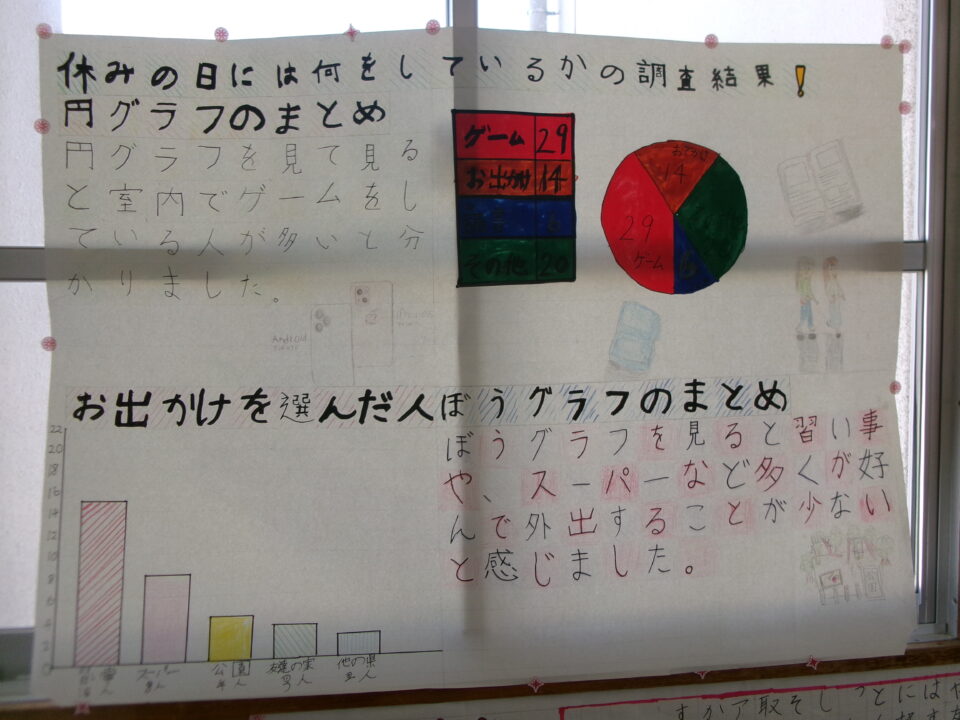 休みの日には何をしているかの調査結果!
円グラフのまとめ
円グラフを見て見る
と室内でゲームをし
ている人が多いと分
かりました。
ゲーム 29
お出かけ 14
6
その他 20
14
29
ゲーム
6
Android
お出かけを選んだ人ぼうグラフのまとめ
ぼうグラフを見ると習い事
や、スーパーなど多くが好
んで外出することが少ない
と感じました。
22
20
18
16
14
12
10
8
6
4
2
0
習い事
人
スーパー
8人
公園
4人
友達の家
人
他の県
人